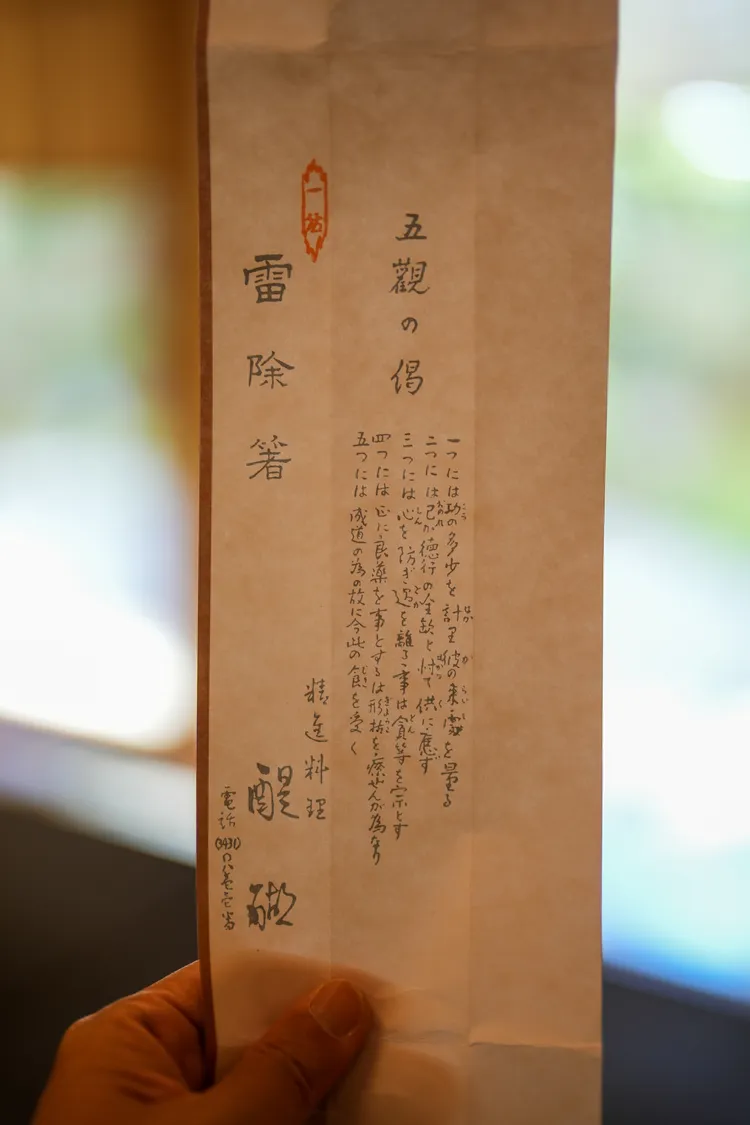 五觀の偈
一つには功の多少を計里彼の来處を量る
二つには己が徳行の全缺と忖て供に應ず
三つには心を防ぎ過を離るゝ事は貪等を宗とす
四つには正に良薬を事とするは形枯を療ぜんが為なり
五つには成道の為の故に今此の食を受く
雷除箸
精進料理
醍醐
電話(3431)〇八壱壱番